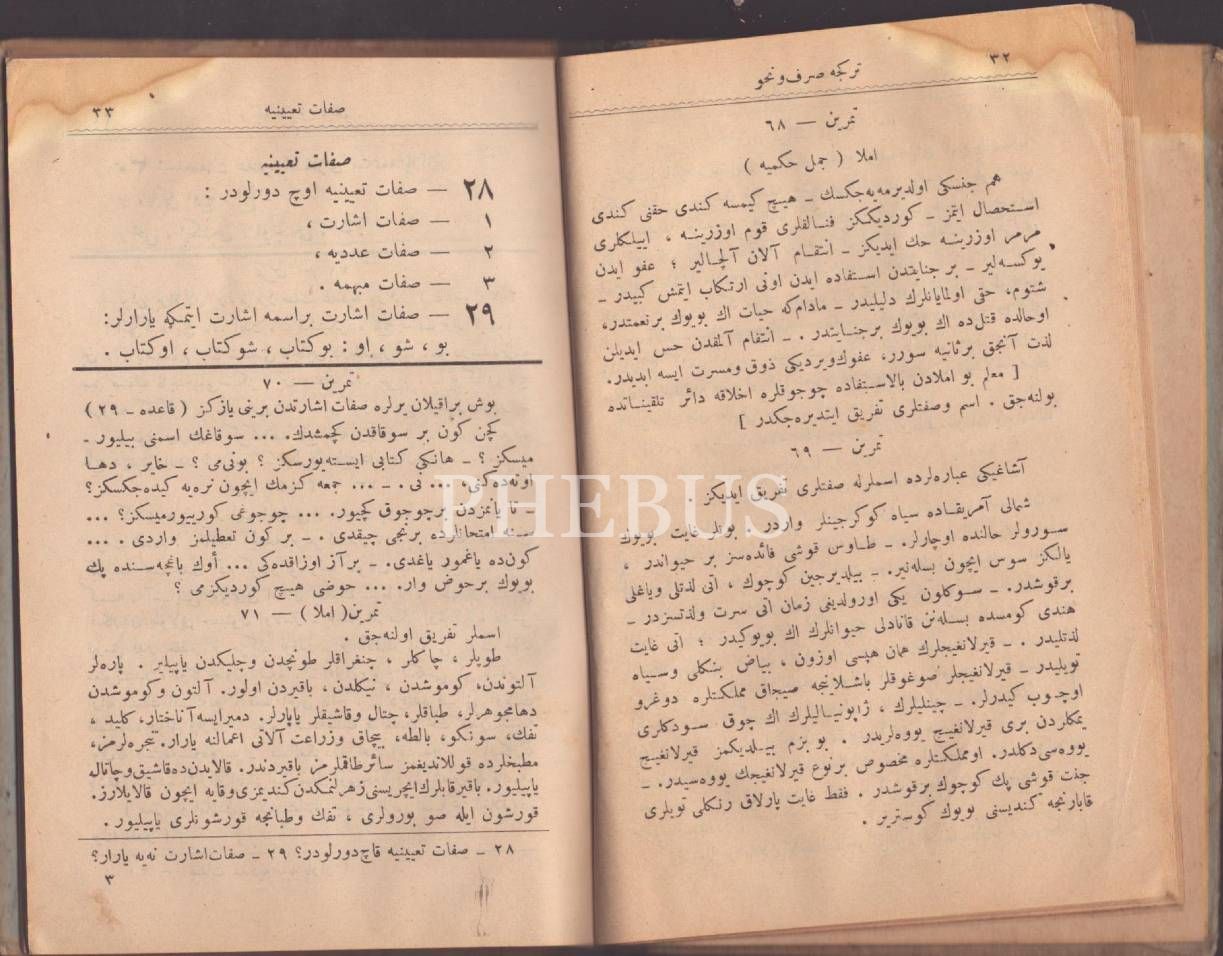 ٣٢
تركجه صرف و نحو
تمرین — ٦٨
املا ( جمل حكمیه )
هم جنسكی اولدیرمه‌یه‌جكسك ـ هیچ كیمسه كندی حقنی كندی
استحصال ایتمز ـ كوردیككز فنالقلری قوم اوزرینه ، ایبلكلری
مرمر اوزرینه حك ایدیكز ـ انتقام آلان آلچالیر ؛ عفو ایدن
یوكسه‌لیر ـ بر جنایتدن استفاده ایدن اونی ارتكاب ایتمش كبیدر ـ
شتوم، حتی اولمایانلرك دلیلیدر ـ مادام‌كه حیات اك بویوك برنعمتدر،
اوحالده قتل‌ده اك بویوك برجنایتدر. ـ انتقام آلمقدن حس ایدیلن
لذت آنجق برثانیه سورر، عفوك‌ویردیكی ذوق ومسرت ایسه ابدیدر.
[ معلم بو املادن بالاستفاده چوجوقلره اخلاقه دائر تلقیناتده
بولنه‌جق . اسم وصفتلری تفریق ایتدیره‌جكدر ]
تمرین — ٦٩
آشاغیكی عباره‌لرده اسملرله صفتلری تفریق ایدیكز .
شمالی آمریقاده سیاه كوكرجینلر واردر . بونلر غایت بویوك
سورولر حالنده اوچارلر. ـ طاوس قوشی فائده‌سز بر حیواندر ،
یالكز سوس ایچون بسله‌نیر. ـ بیلدیرجین كوچوك ، اتی لذتلی ویاغلی
برقوشدر. ـ سوكلون یكی اورولدیغی زمان اتی سرت ولذتسزدر ـ
هندی كومسده بسله‌نن قانادلی حیوانلرك اك بویوكیدر ؛ اتی غایت
لذتلیدر . ـ قیرلانغیجلرك همان هپسی اوزون ، بیاض بنكلی وسیاه
تویلیدر ـ قیرلانغیجلر صوغوقلر باشلانجه صیجاق مملكتلره دوغرو
اوچوب كیدرلر. ـ چینلیلرك ، ژاپونیالیلرك اك چوق سودكلری
یمكلردن بری قیرلانغیج یووه‌لریدر . بو بزم بیلدیكمز قیرلانغیج
یووه‌سی دكلدر. اومملكتلره مخصوص برنوع قیرلانغیجك یووه‌سیدر. ـ
جنت قوشی پك كوچوك برقوشدر . فقط غایت پارلاق رنكلی تویلری
قابارنجه كندیسنی بویوك كوستریر .
صفات تعیینیه
٣٣
صفات تعیینیه
٢٨ — صفات تعیینیه اوچ دورلودر :
١ — صفات اشارت ،
٢ — صفات عددیه ،
٣ — صفات مبهمه .
٢٩ — صفات اشارت براسمه اشارت ایتمكه یارارلر:
بو ، شو ، او : بوكتاب ، شوكتاب ، اوكتاب .
تمرین — ٧٠
بوش براقیلان یرلره صفات اشارتدن برینی یازكز ( قاعده ـ ٢٩ )
كچن كون بر سوقاقدن كچمشدك. ... سوقاغك اسمنی بیلیور ـ
میسكز ؟ ـ هانكی كتابی ایسته‌یورسكز ؟ بونی‌می ؟ ـ خایر ، دها
اوته‌ده‌كنی، ... نی . ـ ... جمعه كزمك ایچون نره‌یه كیده‌جكسكز؟
ـ تا یانمزدن برچوجوق كچیور. ... چوجوغی كورییورمیسكز؟ ...
سنه امتحانلرده برنجی چیقدی . ـ بر كون تعطیلمز واردی . ...
كون‌ده یاغمور یاغدی. ـ بر آز اوزاقده‌كی ... أوك باغچه‌سنده پك
بویوك برحوض وار. ... حوضی هیچ كوردیكزمی ؟
تمرین( املا ) — ٧١
اسملر تفریق اولنه‌جق .
طوپلر ، چاكلر ، چنغراقلر طونچدن وچلیكدن یاپیلیر . پاره‌لر
آلتوندن، كوموشدن ، نیكلدن، باقیردن اولور. آلتون وكوموشدن
دهامجوهرلر، طباقلر، چتال وقاشیقلر یاپارلر. دمیرایسه آناختار، كلید ،
تفك، سونكو، بالطه، بیچاق وزراعت آلاتی اعمالنه یارار. تنجره‌لرمز،
مطبخلرده قوللاندیغمز سائرطاقملرمز باقیردندر. قالایدن‌ده‌قاشیق‌وچاتال
یاپیلیور. باقیرقابلرك ایچریسنی زهرلنمكدن‌كندیمزی‌وقایه ایچون قالایلارز.
قورشون ایله صو بورولری ، تفك وطبانجه قورشونلری یاپیلیور.
٢٨ ـ صفات تعیینیه قاچ دورلودر؟ ٢٩ ـ صفات‌اشارت نه‌یه یارار؟
٣
PHEBUS